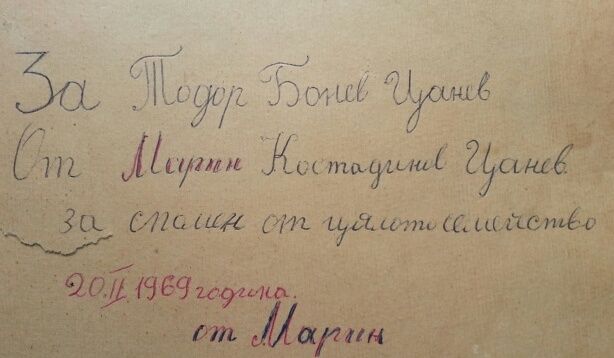 За Тодор Бонев Цанев
От Марин Костадинов Цанев
за спомен от цялото семейство
20.II.1969 година.
от Марин